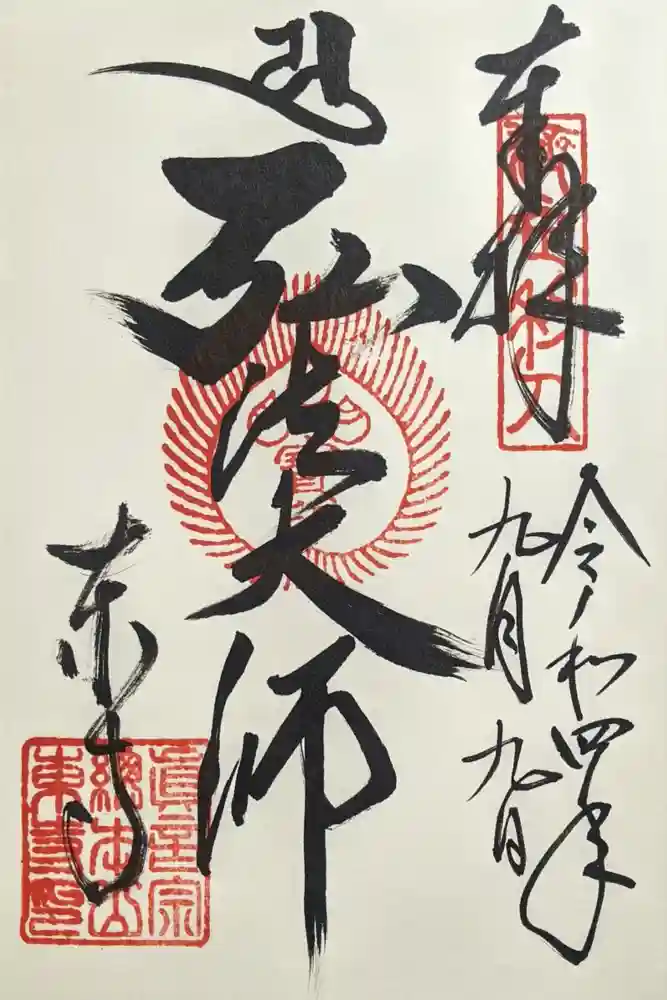 奉拝
令和四年
九月九日
弘法大師
東寺
眞言宗
總本山
東寺印